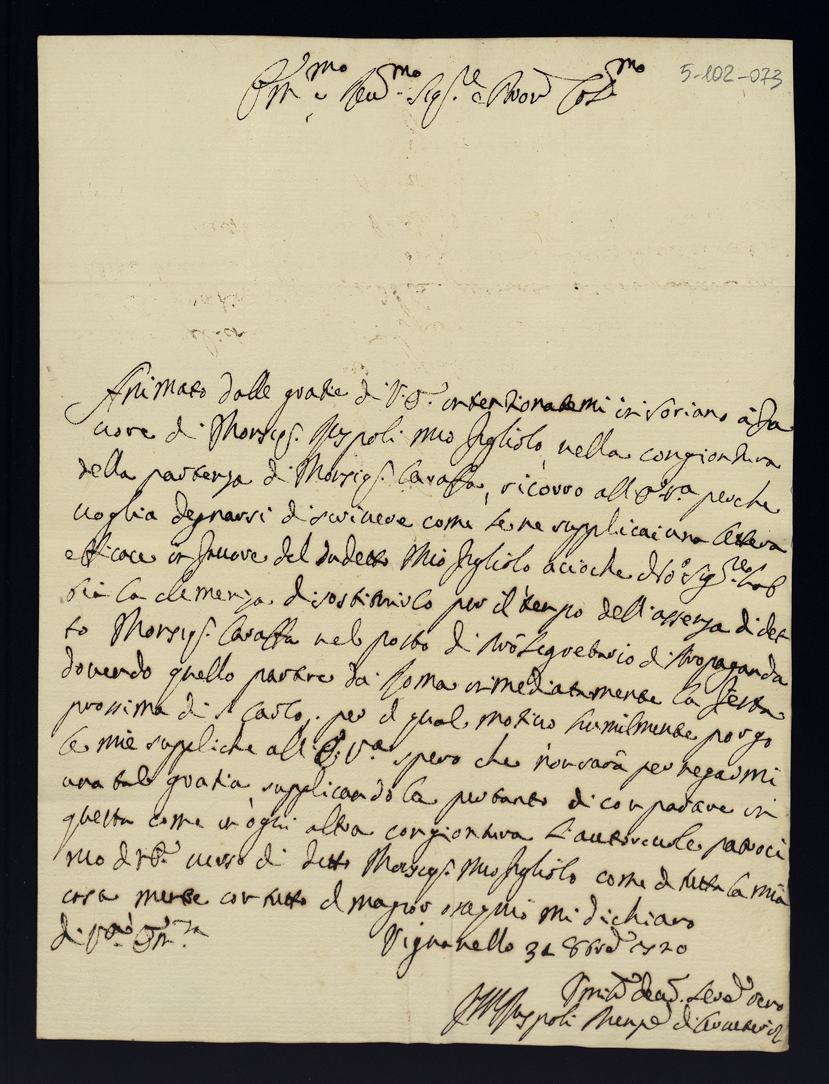 5-102-073
Em.mo e Reu.mo Sig.re e Pron Col.mo
Animato dalle gratie di V.E. intenzionatemi in Soriano à fa
uore di Monsig.r Ruspoli mio figliolo, nella congiontura
della partenza di Monsig.r Caraffa, ricorro all'E.V.ra perche
uoglia degnarsi di scriuere come le ne supplicai una lettera
efficace in fauore del sudetto Mio figliolo acioche
bia la clemenza di sostituirlo per il tempo dell'assenza di det
to Monsig.r Caraffa nel posto di Prò Segretario di Propaganda
douendo quello partire da Roma immediatamente la festa
prossima di S. Carlo, per il qual motiuo humilmente porgo
le mie suppliche all'E.V.ra spero che non sarà per negarmi
una tal gratia supplicandola pertanto di compartire in
questa come in ogni altra congiontura l'autoreuole patroci
nio di V.E. uerso di detto Monsig.r Mio figliolo come di tutta la mia
casa mentre con tutto il magior ossequio mi dichiaro
di V.ra Em.za
Vignanello 31 8bre 1720
Seru.
Ruspoli di Cerueteri